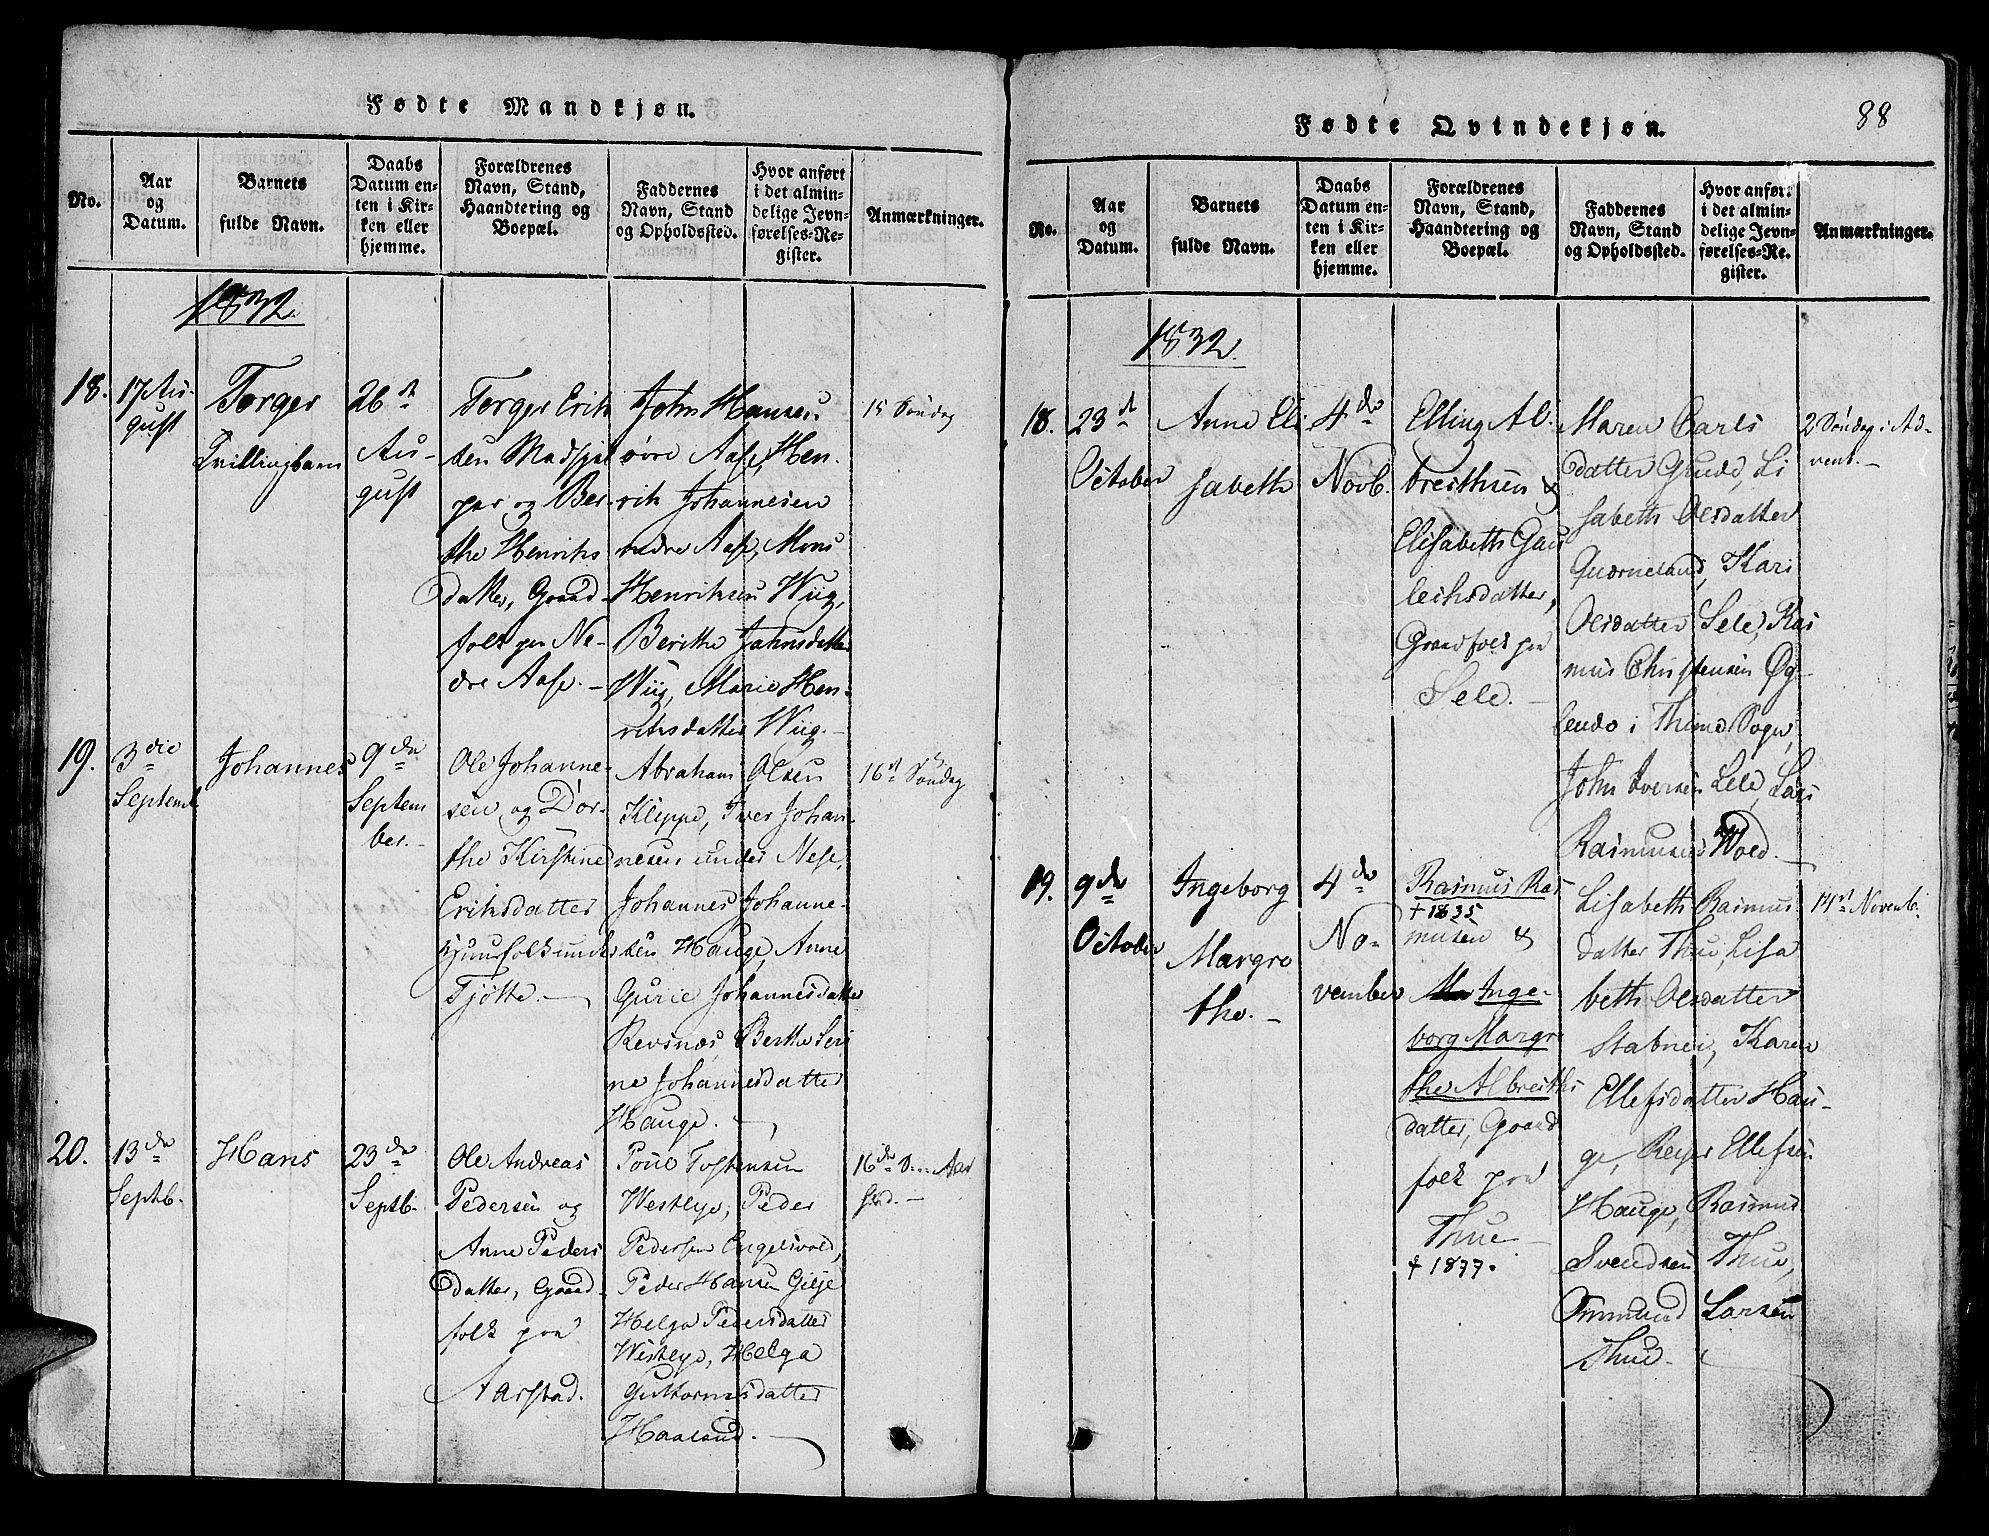 Fødte Mandkjøn.
No.
Aar
og
Datum.
Barnets
fulde Navn.
Daabs
Datum en-
ten i Kir-
ken eller
hjemme.
Forældrenes
Navn, Stand,
Haandtering og
Boepæl.
Faddernes
Navn, Stand
og Opholdssted.
Hvor anført
i det almin-
delige Jevn-
førelses-Re-
gister.
Anmærkninger.
1832.
18.
17 Au-
gust
Torger
Tvillingbarn
26de
Au-
gust
Torger Erik
sen Madspi
per og Ber-
the Henriks
datter, Gaard-
folk paa Ne-
dre Aase.
John Hansen
øvre Aase, Hen-
rik Johannesen
nedre Aase, Mons
Henriksen Wiig,
Berithe Johnsdatter
Wiig, Marie Hen-
riksdatter Wiig.
15 Søndag
19.
3die
Septemb
Johannes
9de
Septem
ber.
Ole Johanne-
sen og Dor-
the Kirstine
Eriksdatter
Huusfolk under
Tjøtte.
Abraham Olsen
Kleppe, Iver Johan-
nesen under Nese,
Johannes Johanne-
sen Hauge, Anne
Gurie Johannesdatter
Revsnæs, Berthe Seri
ne Johannesdatter
Hauge.
16de Søndag
20.
13de
Septb.
Hans
23de
Septb.
Ole Andreas
Pedersen og
Anne Peders
datter, Gaard-
folk paa
Aarstad.
Poul Tostensen
Westlye, Peder
Pedersen Engelsvold,
Peder Hansen Gieje
Helga Pedersdatter
Westlye, Helga
Guttormsdatter
Haaland.
16de
Fødte Qvindekjøn.
88
No.
Aar
og
Datum.
Barnets
fulde Navn.
Daabs
Datum en-
ten i Kir-
ken eller
hjemme.
Forældrenes
Navn, Stand,
Haandtering og
Boepæl.
Faddernes
Navn, Stand
og Opholdssted.
Hvor anført
i det almin-
delige Jevn-
førelses-Re-
gister.
Anmærkninger.
1832.
18.
23de
October
Anne Eli
sabeth
4de
Novb.
Elling Al-
breithsen &
Elisabeth Gau
leiksdatter,
Gaardfolk paa
Sele.
Maren Carls
datter Grude, Li
sabeth Olsdatter
Quærneland, Kari
Olsdatter Sele, Ras
mus Christensen Øg-
lende i Thime Sogn,
John Iversen Sele, Lars
Rasmusen Wold.
2 Søndag i Ad-
vent.
19.
9de
October
Ingeborg
Margre
the.
4de
No-
vember
Rasmus Ras
+ 1835
musen &
Inge-
borg Margre
the Albreiths
datter, Gaard
folk paa
Thue
+ 1877.
Lisabeth Rasmus
datter Thue, Lisa
beth Olsdatter
Stabnei, Karen
Ellefsdatter Hau-
ge, Reyer Ellefsen
Hauge, Rasmus
Svendsen Thue,
Ommund Larsen
Thue.
14de Novemb.